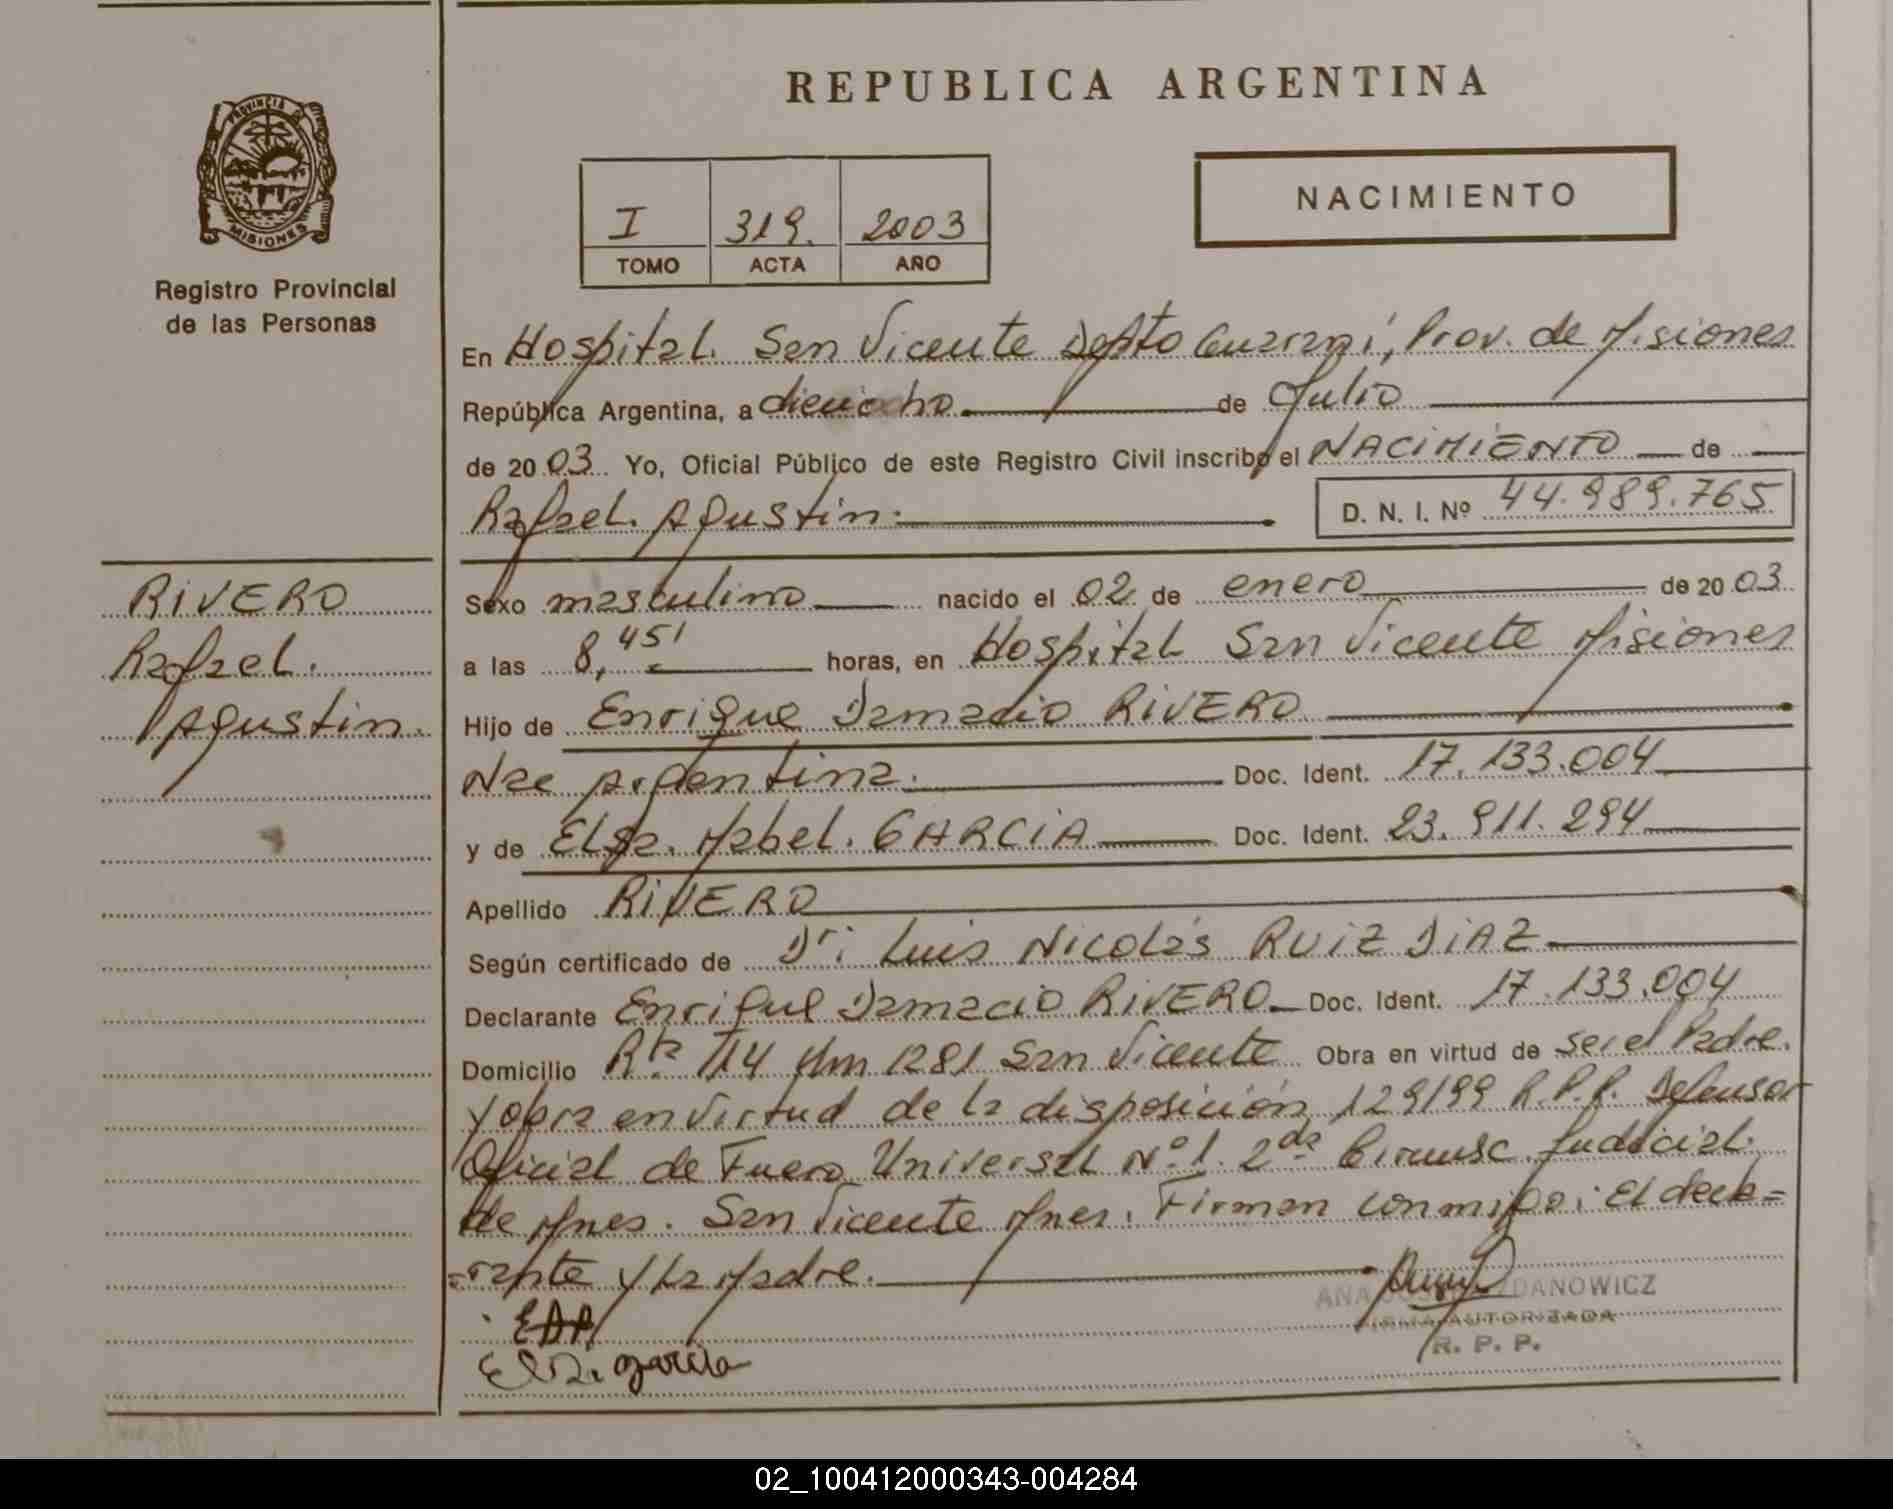 REPUBLICA ARGENTINA
PROVINCIA DE MISIONES
Registro Provincial
de las Personas
I 319. 2003
TOMO ACTA AÑO
NACIMIENTO
En Hospital. San Vicente Depto Guaraní, Prov. de Misiones
República Argentina, a dieciocho de Julio
de 2003 Yo, Oficial Público de este Registro Civil inscribo el NACIMIENTO de
Rafael. Agustin.
D. N. I. Nº 44.989.765
RIVERO
Rafael.
Agustin.
Sexo masculino nacido el 02 de enero de 2003
a las 8,45' horas, en Hospital San Vicente Misiones
Hijo de Enrique Damacio RIVERO
Nac Argentina. Doc. Ident. 17.133.004
y de Elsa. Mabel. GARCIA Doc. Ident. 23.911.294
Apellido RIVERO
Según certificado de Dr: Luis Nicolás RUIZ DIAZ
Declarante Enrique Damacio RIVERO Doc. Ident. 17.133.004
Domicilio Rta 14 Km 1281 San Vicente Obra en virtud de ser el Padre.
Y obra en virtud de la disposición 129/99 R.P.P. Defensor
Oficial de Fuero Universal Nº 1. 2da Circunsc. Judicial.
de Mnes. San Vicente Mnes. Firman conmigo: El decla=
=rante y la Madre.
EDR
ANA DANOWICZ
FIRMA AUTORIZADA
R. P. P.
Elsa. garcia
02_100412000343-004284